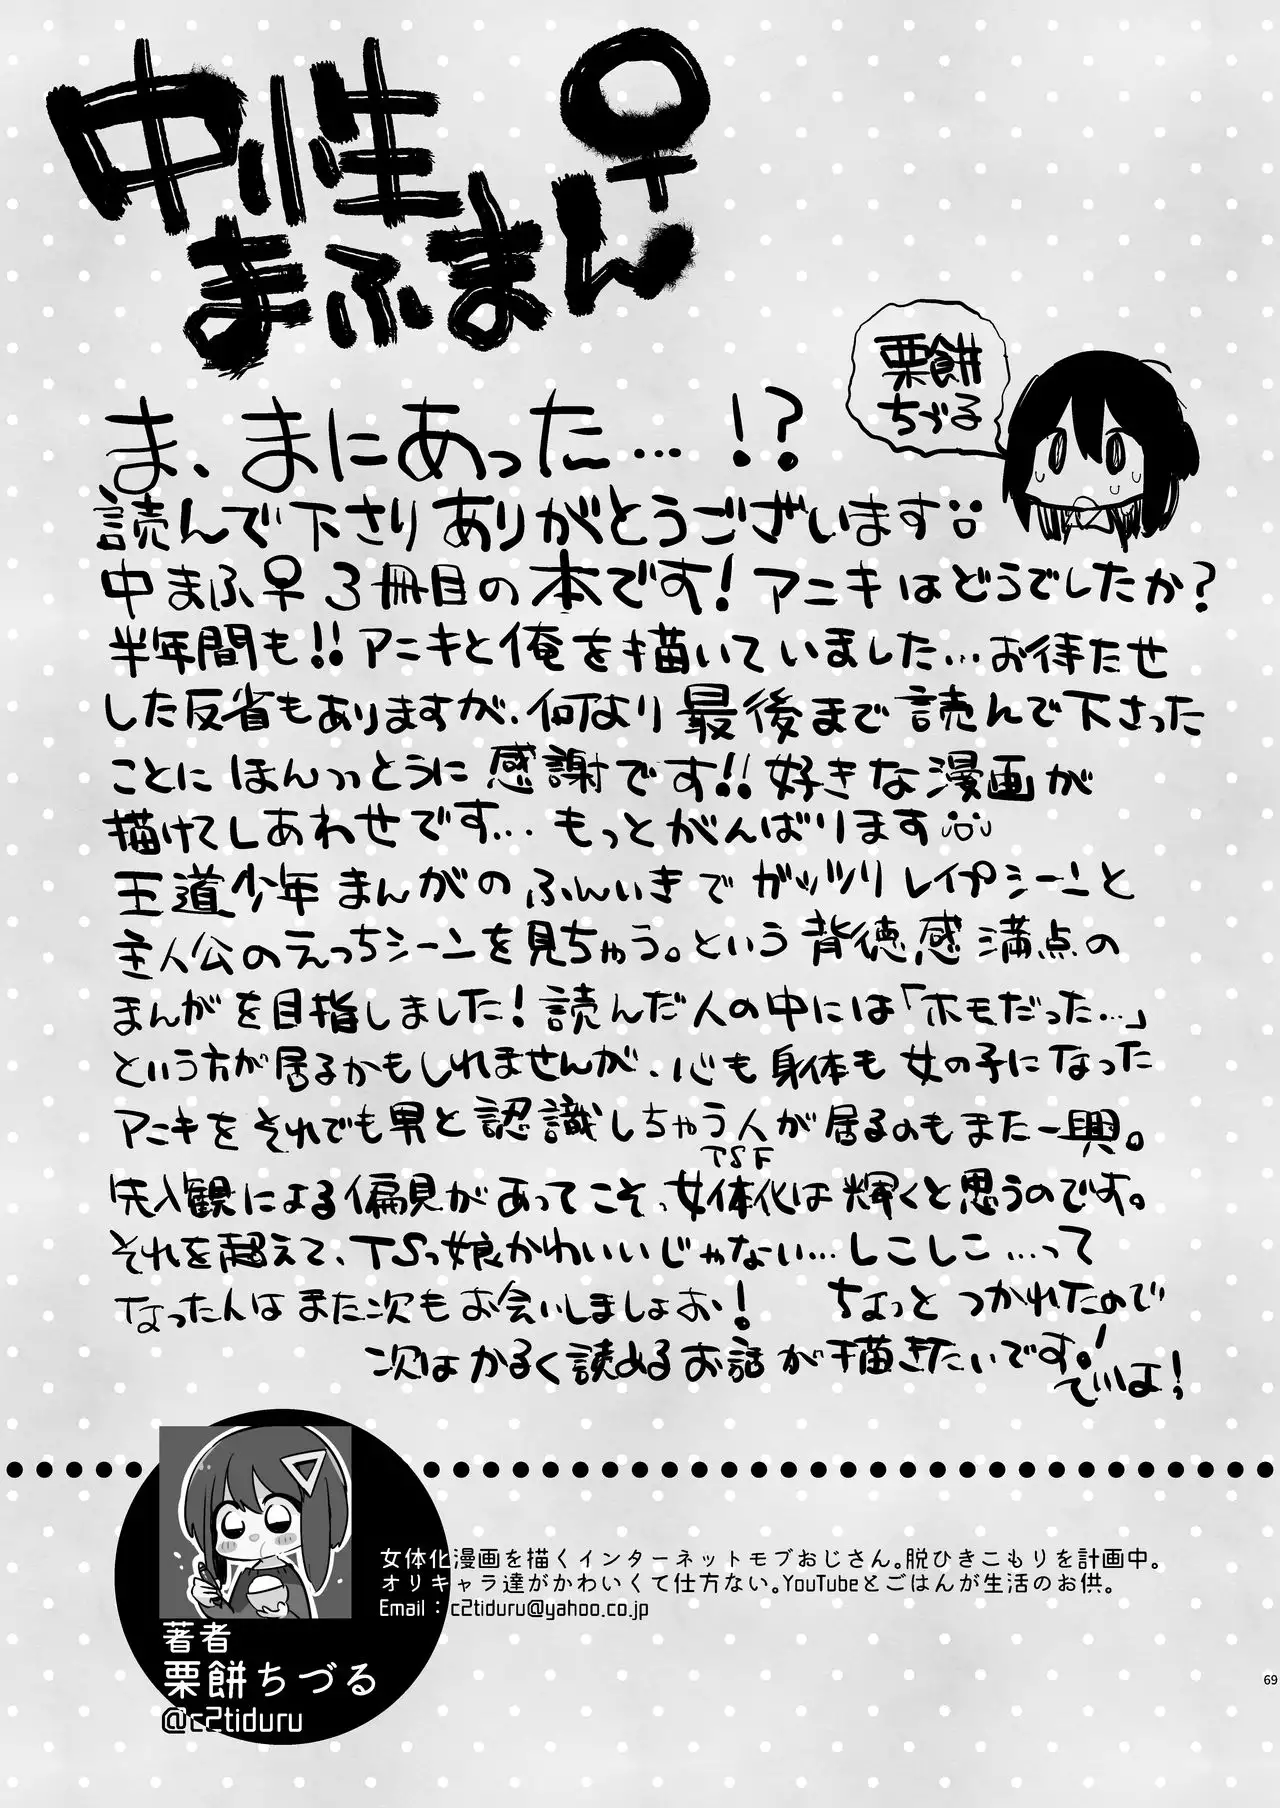 中性
まふまん♀
栗餅
ちづる
ま、まにあった…!?
読んで下さりありがとうございます
中まふ♀3冊目の本です!アニキはどうでしたか?
半年間も!!アニキと俺を描いていました…お待たせ
した反省もありますが、何より最後まで読んで下さった
ことにほんっっとうに感謝です!!好きな漫画が
描けてしあわせです…もっとがんばります
王道少年まんがのふんいきでガッツリレイプシーンと
主人公のえっちシーンを見ちゃう。という背徳感満点の
まんがを目指しました!読んだ人の中には「ホモだった…」
という方が居るかもしれませんが、心も身体も女の子になった
アニキをそれでも男と認識しちゃう人が居るのもまた一興。
TSF
先入観による偏見があってこそ、女体化は輝くと思うのです。
それを超えて、TSっ娘かわいいじゃない…しこしこ…って
なったんはまた次もお会いしましょお! ちょっとつかれたので
次はかるく読めるお話が描きたいです!
でいは!
女体化漫画を描くインターネットモブおじさん。脱ひきこもりを計画中。
オリキャラ達がかわいくて仕方ない。YouTubeとごはんが生活のお供。
Email：c2tiduru@yahoo.co.jp
著者
栗餅ちづる
@c2tiduru
69